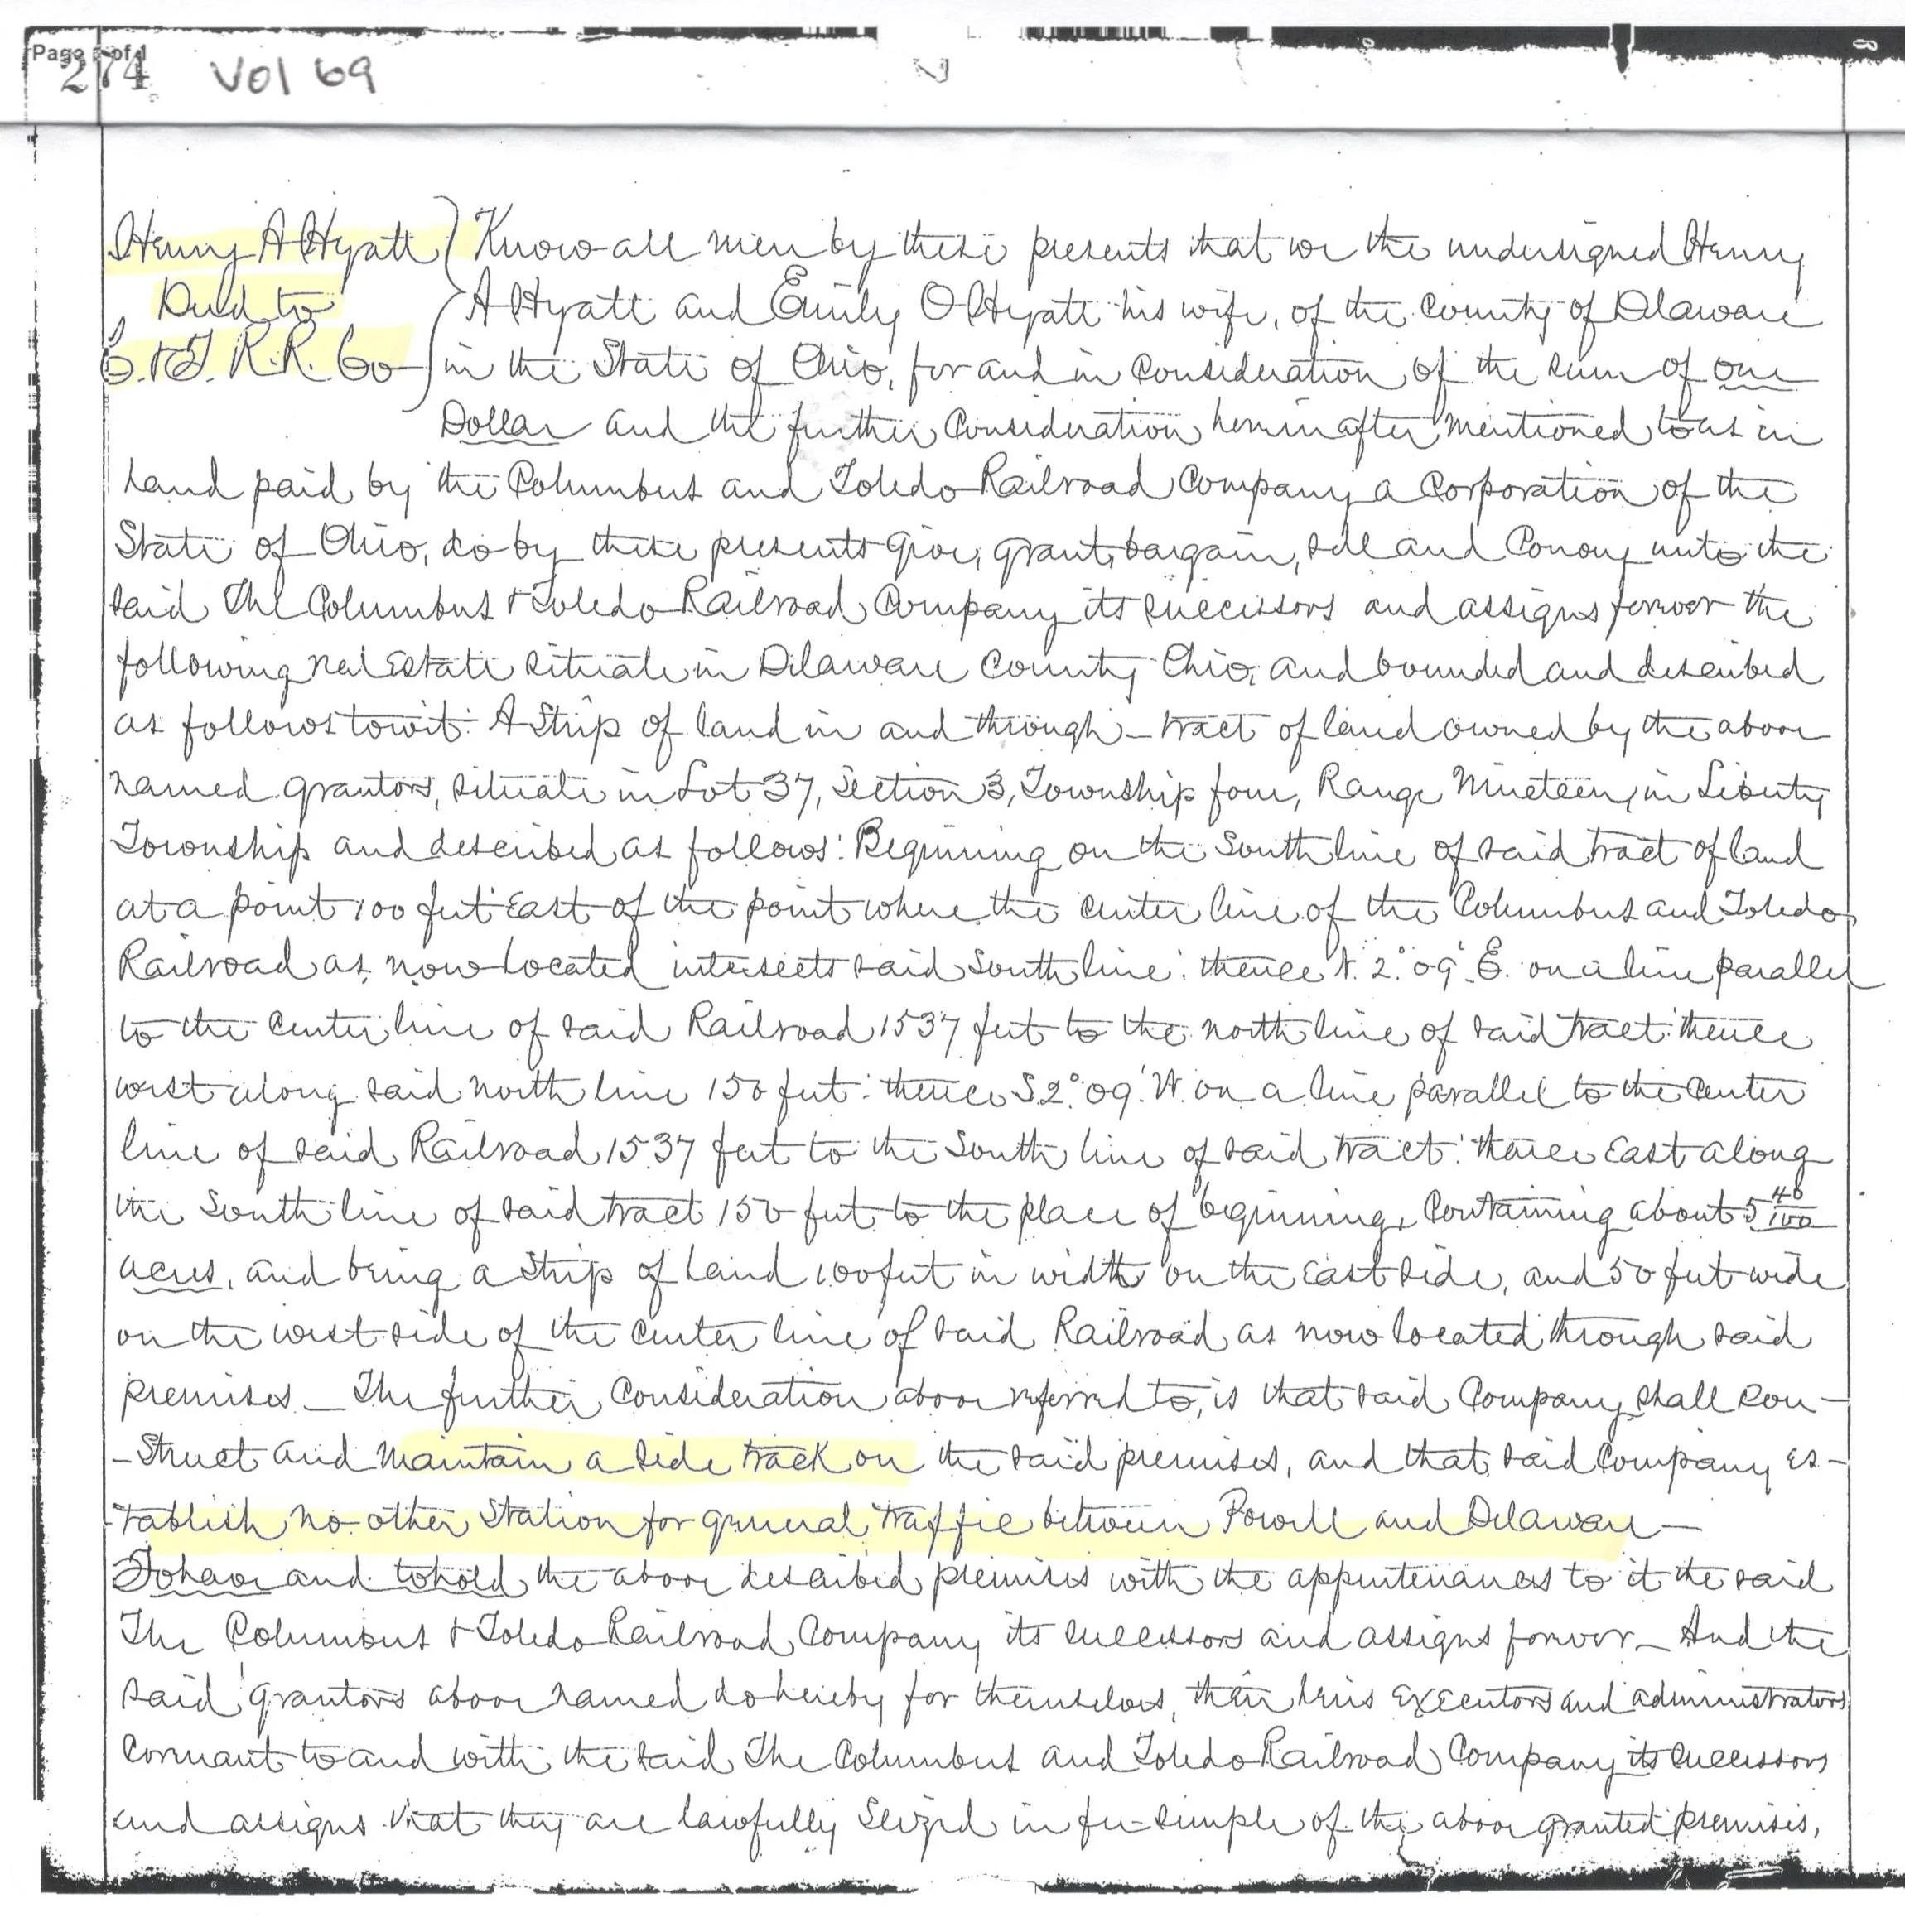 Page 1 of 1
274 Vol 69
Henry A Hyatt Know all men by these presents that we the undersigned Henry
Deed to A Hyatt and Emily O Hyatt his wife, of the County of Delaware
C. & T. R.R. Co in the State of Ohio, for and in consideration of the sum of one
Dollar and the further consideration hereinafter mentioned to us in
hand paid by the Columbus and Toledo Railroad Company a Corporation of the
State of Ohio, do by these presents give, grant, bargain, sell and Convey unto the
said The Columbus & Toledo Railroad Company its successors and assigns forever the
following real Estate situate in Delaware County Ohio, and bounded and described
as follows towit: A Strip of land in and through – tract of land owned by the above
named grantors, situate in Lot 37, Section 3, Township four, Range Nineteen, in Liberty
Township and described as follows: Beginning on the South line of said tract of land
at a point 100 feet East of the point where the center line of the Columbus and Toledo
Railroad as now located intersects said South line: thence N. 2° 09' E. on a line parallel
to the center line of said Railroad 1537 feet to the north line of said tract: thence
west along said north line 150 feet: thence S 2° 09' W. on a line parallel to the Center
line of said Railroad 1537 feet to the South line of said tract: thence East along
the South line of said tract 150 feet to the place of beginning, Containing about 5 40/100
acres, and being a Strip of land 100 feet in width on the East side, and 50 feet wide
on the west side of the center line of said Railroad as now located through said
premises – The further Consideration above referred to, is that said Company shall con-
-struct and maintain a side track on the said premises, and that said Company es-
-tablish no other Station for general traffic between Powell and Delaware –
To have and to hold the above described premises with the appurtenances to it the said
The Columbus & Toledo Railroad Company its successors and assigns forever – And the
said grantors above named do hereby for themselves, their heirs executors and administrators
Covenant to and with the said The Columbus and Toledo Railroad Company its successors
and assigns that they are lawfully Seized in fee-simple of the above granted premises,